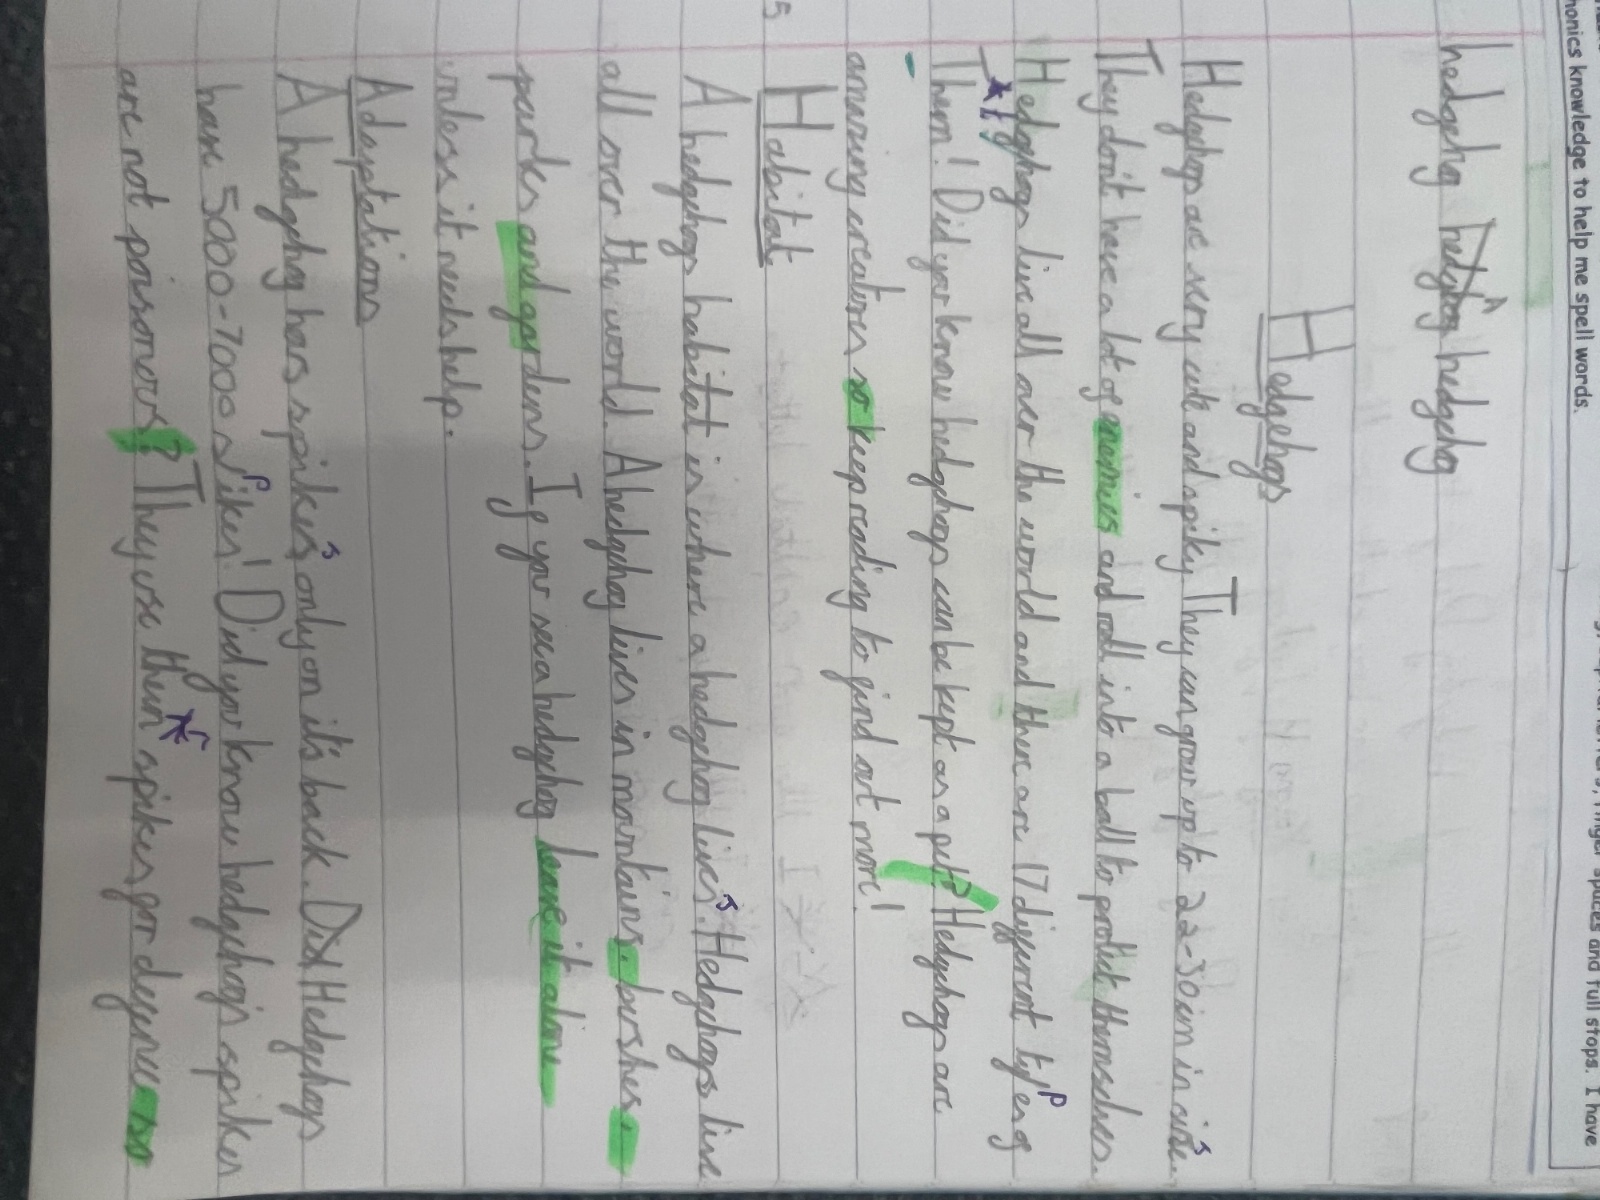 honics knowledge to help me spell words.
nger spaces and full stops. I have
hedgehg hedgehog hedgehog
Hedgehogs
Hedgehogs are very cute and spiky. They can grow up to 22-30cm in size.
They don't have a lot of enemies and roll into a ball to protect themselves.
Hedgehogs live all over the world and there are 17 different types of
Them! Did you know hedgehogs can be kept as a pet? Hedgehogs are
amazing creatures so keep reading to find out more!
5
Habitat
A hedgehogs habitat is where a hedgehog lives. Hedgehogs live
all over the world. A hedgehog lives in mountains, bushes,
parks and gardens. If you see a hedgehog leave it alone
unless it needs help.
Adaptations
A hedgehog has spikes only on it's back. Did Hedgehogs
have 5000-7000 spikes! Did you know hedgehogs spikes
are not poisonous? They use their spikes for defence so